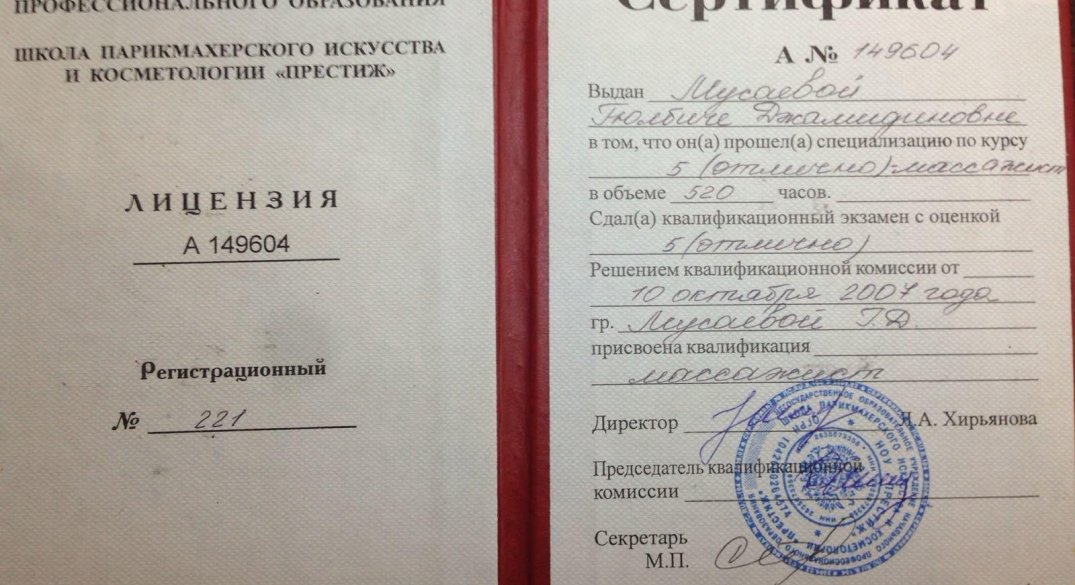 ПРОФЕССИОНАЛЬНОГО ОБРАЗОВАНИЯ
ШКОЛА ПАРИКМАХЕРСКОГО ИСКУССТВА
И КОСМЕТОЛОГИИ «ПРЕСТИЖ»
ЛИЦЕНЗИЯ
А 149604
Регистрационный
№ 221
Сертификат
А № 149604
Выдан Мусаевой
Гюлбиче Джамидиновне
в том, что он(а) прошел(а) специализацию по курсу
5 (отлично)-массажист
в объеме 520 часов.
Сдал(а) квалификационный экзамен с оценкой
5 (отлично)
Решением квалификационной комиссии от
10 октября 2007 года
гр. Мусаевой Г.Д.
присвоена квалификация
массажист
Директор Л.А. Хирьянова
Председатель квалификационной
комиссии
Секретарь
М.П.